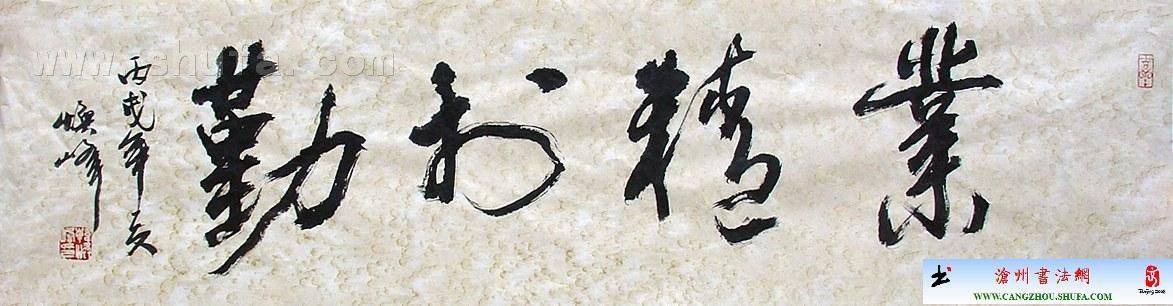 業精於勤
丙戌年夏
煥峰
www.shufa.com
滄州書法網
WWW.CANGZHOU.SHUFA.COM
Beijing 2008